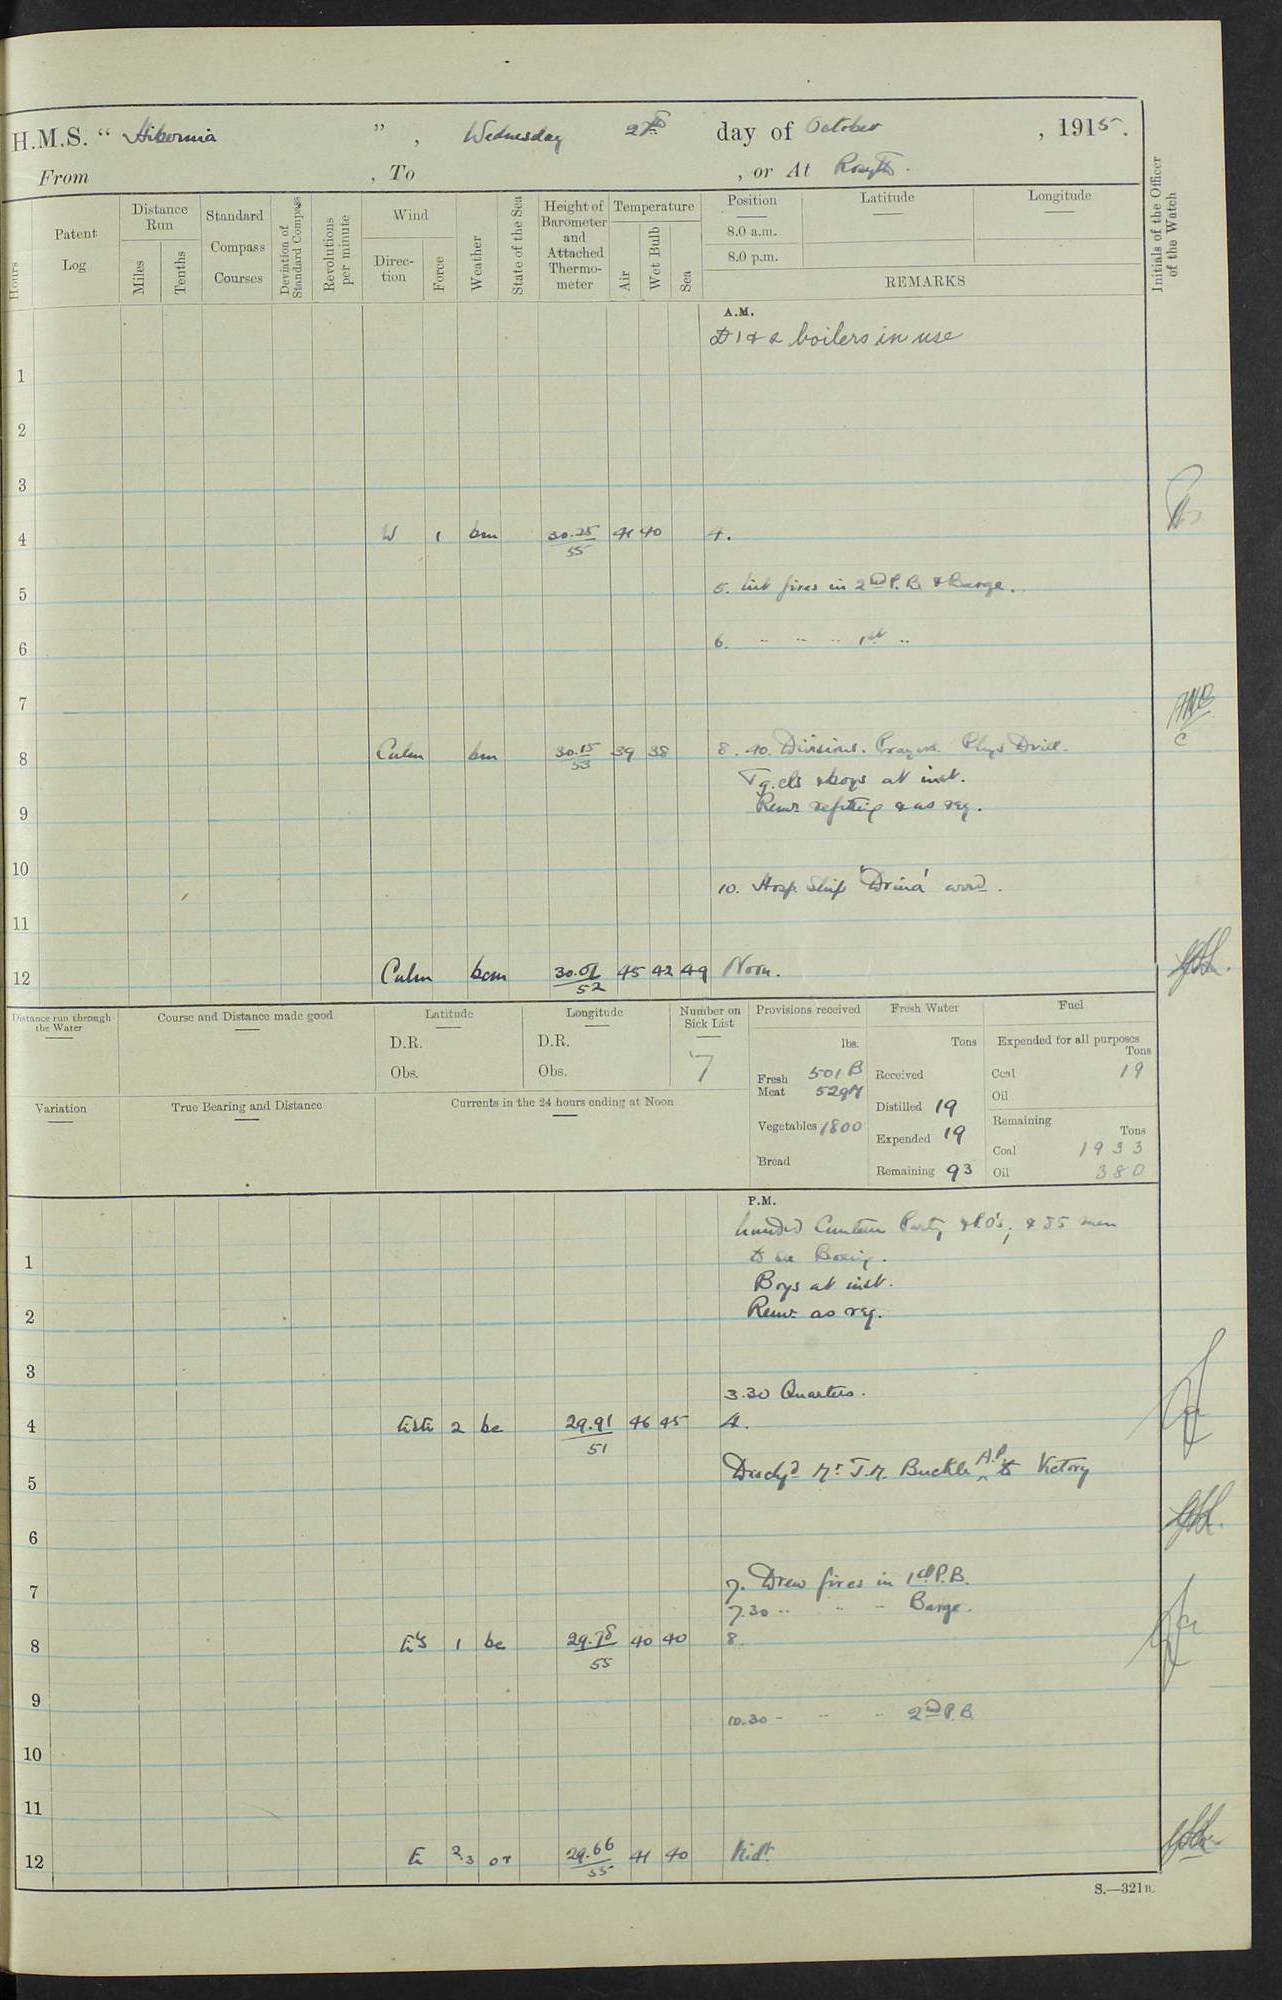 H.M.S. “ Hibernia ” , Wednesday 27th day of October , 1915.
From , To , or At Rosyth.
Hours
Patent Log
Distance Run
Miles
Tenths
Standard Compass Courses
Deviation of Standard Compass
Revolutions per minute
Wind
Direction
Force
Weather
State of the Sea
Height of Barometer and Attached Thermometer
Temperature
Air
Wet Bulb
Sea
Position
8.0 a.m.
8.0 p.m.
Latitude
Longitude
REMARKS
Initials of the Officer of the Watch
A.M.
1 & 2 boilers in use
1
2
3
4 W 1 bm 30.25 41 40 4.
55
5 5. Lit fires in 2nd P.B. & Barge.
6 6. " " " 1st "
7
8 Calm bm 30.15 39 38 8.40. Divisions. Prayers. Phys Drill.
53
Tg. cls & boys at inst.
9 Remr refitting & as req.
10 10. Hosp. Ship 'Drina' arrd.
11
12 Calm bcm 30.01 45 42 49 Noon.
52
Distance run through the Water
Course and Distance made good
Latitude
D.R.
Obs.
Longitude
D.R.
Obs.
Number on Sick List
7
Provisions received
lbs.
Fresh Meat 501 B
529 M
Vegetables 1800
Bread
Fresh Water
Tons
Received
Distilled 19
Expended 19
Remaining 93
Fuel
Expended for all purposes
Tons
Coal 19
Oil
Remaining
Tons
Coal 1933
Oil 380
Variation
True Bearing and Distance
Currents in the 24 hours ending at Noon
P.M.
Landed Canteen Party & P.O's, & 55 men
1 to see Boxing.
Boys at inst.
2 Remr. as req.
3
3.30 Quarters.
4 2 bc 29.91 46 45 4.
51
5 Dischgd Mr J.M. Buckle A.P. to Victory
6
7 7. Drew fires in 1st P.B.
7.30 " " " Barge.
8 1 bc 29.78 40 40 8.
55
9 10.30 " " " 2nd P.B.
10
11
12 E 2.3 or 29.66 41 40 Midt.
55
S.—321B.